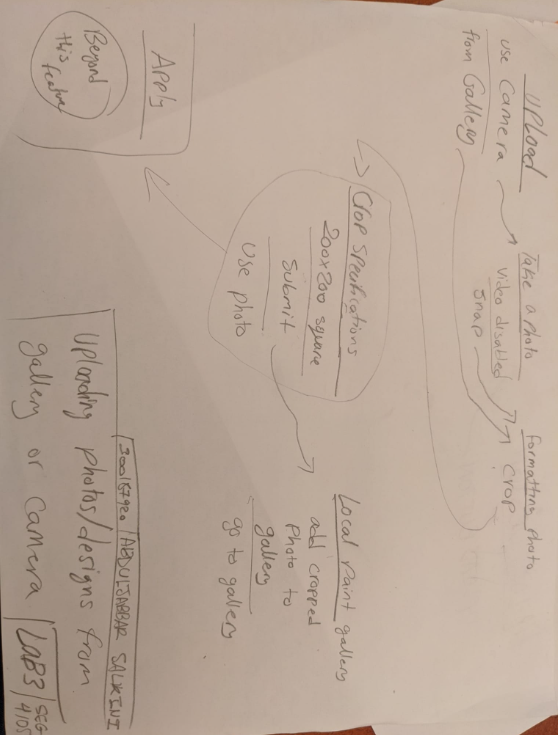 UPLOad
use Camera
from Gallery
Take a photo
video disabled
snap
formatting photo
crop
Crop specifications
200x200 square
submit
Use photo
Local paint gallery
add cropped
photo to
gallery
go to gallery
APPly
Beyond
this
feature
ABDULJABBAR SALKINI
Uploading photos/designs from
gallery or camera
LAB3
SEG
4105